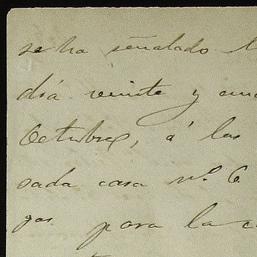 se ha señalado l
día veinte y cua
Octubre, á las
sada casa nº 6
gas para la c